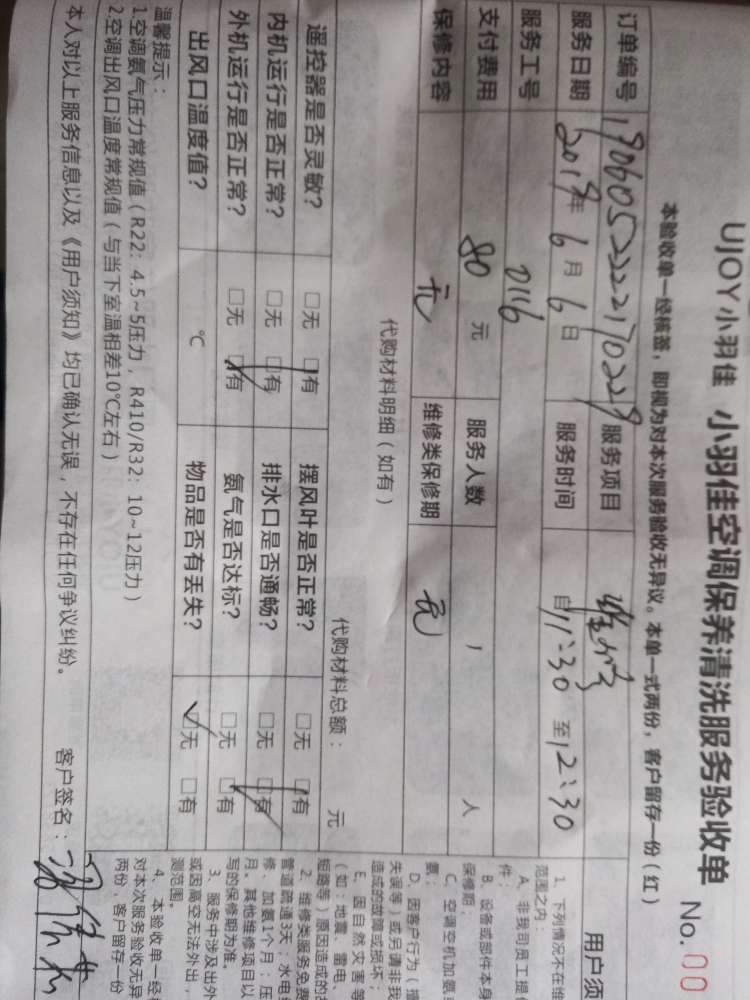 UJOY小羽佳 小羽佳空调保养清洗服务验收单 No.00
本验收单一经核签，即视为对本次服务验收无异议。本单一式两份，客户留存一份（红）
订单编号 服务项目
服务日期 2019年6月6日 服务时间 自11:30 至12:30
服务工号 0116
支付费用 80元 服务人数 1 人
保修内容 无 维修类保修期 无
代购材料明细（如有） 代购材料总额： 元
遥控器是否灵敏？ □无 □有 摆风叶是否正常？ □无 □有
内机运行是否正常？ □无 □有 排水口是否通畅？ □无 □有
外机运行是否正常？ □无 □有 氨气是否达标？ □无 □有
出风口温度值？ ℃ 物品是否有丢失？ □无 □有
温馨提示：
1.空调氨气压力常规值（R22：4.5~5压力，R410/R32：10~12压力）
2.空调出风口温度常规值（与当下室温相差10℃左右）
本人对以上服务信息以及《用户须知》均已确认无误，不存在任何争议纠纷。 客户签名：
用户须
1、下列情况不在维
范围之内：
A、非我司员工提供
件；
B、设备或部件本身
保修期；
C、空调空机加氨
氨；
D、因客户行为（
失误等）或另请非我
造成的故障或损坏；
E、因自然灾害等
（如：地震、雷电、
短路等）原因造成的
2、维修类服务免费
管道疏通3天；水电
修、加氨1个月；压
月。其他维修项目以
写的保修期为准。
3、服务中涉及出外
或因高空无法外出，
测范围。
4、本验收单一经
对本次服务验收无异
两份，客户留存一份